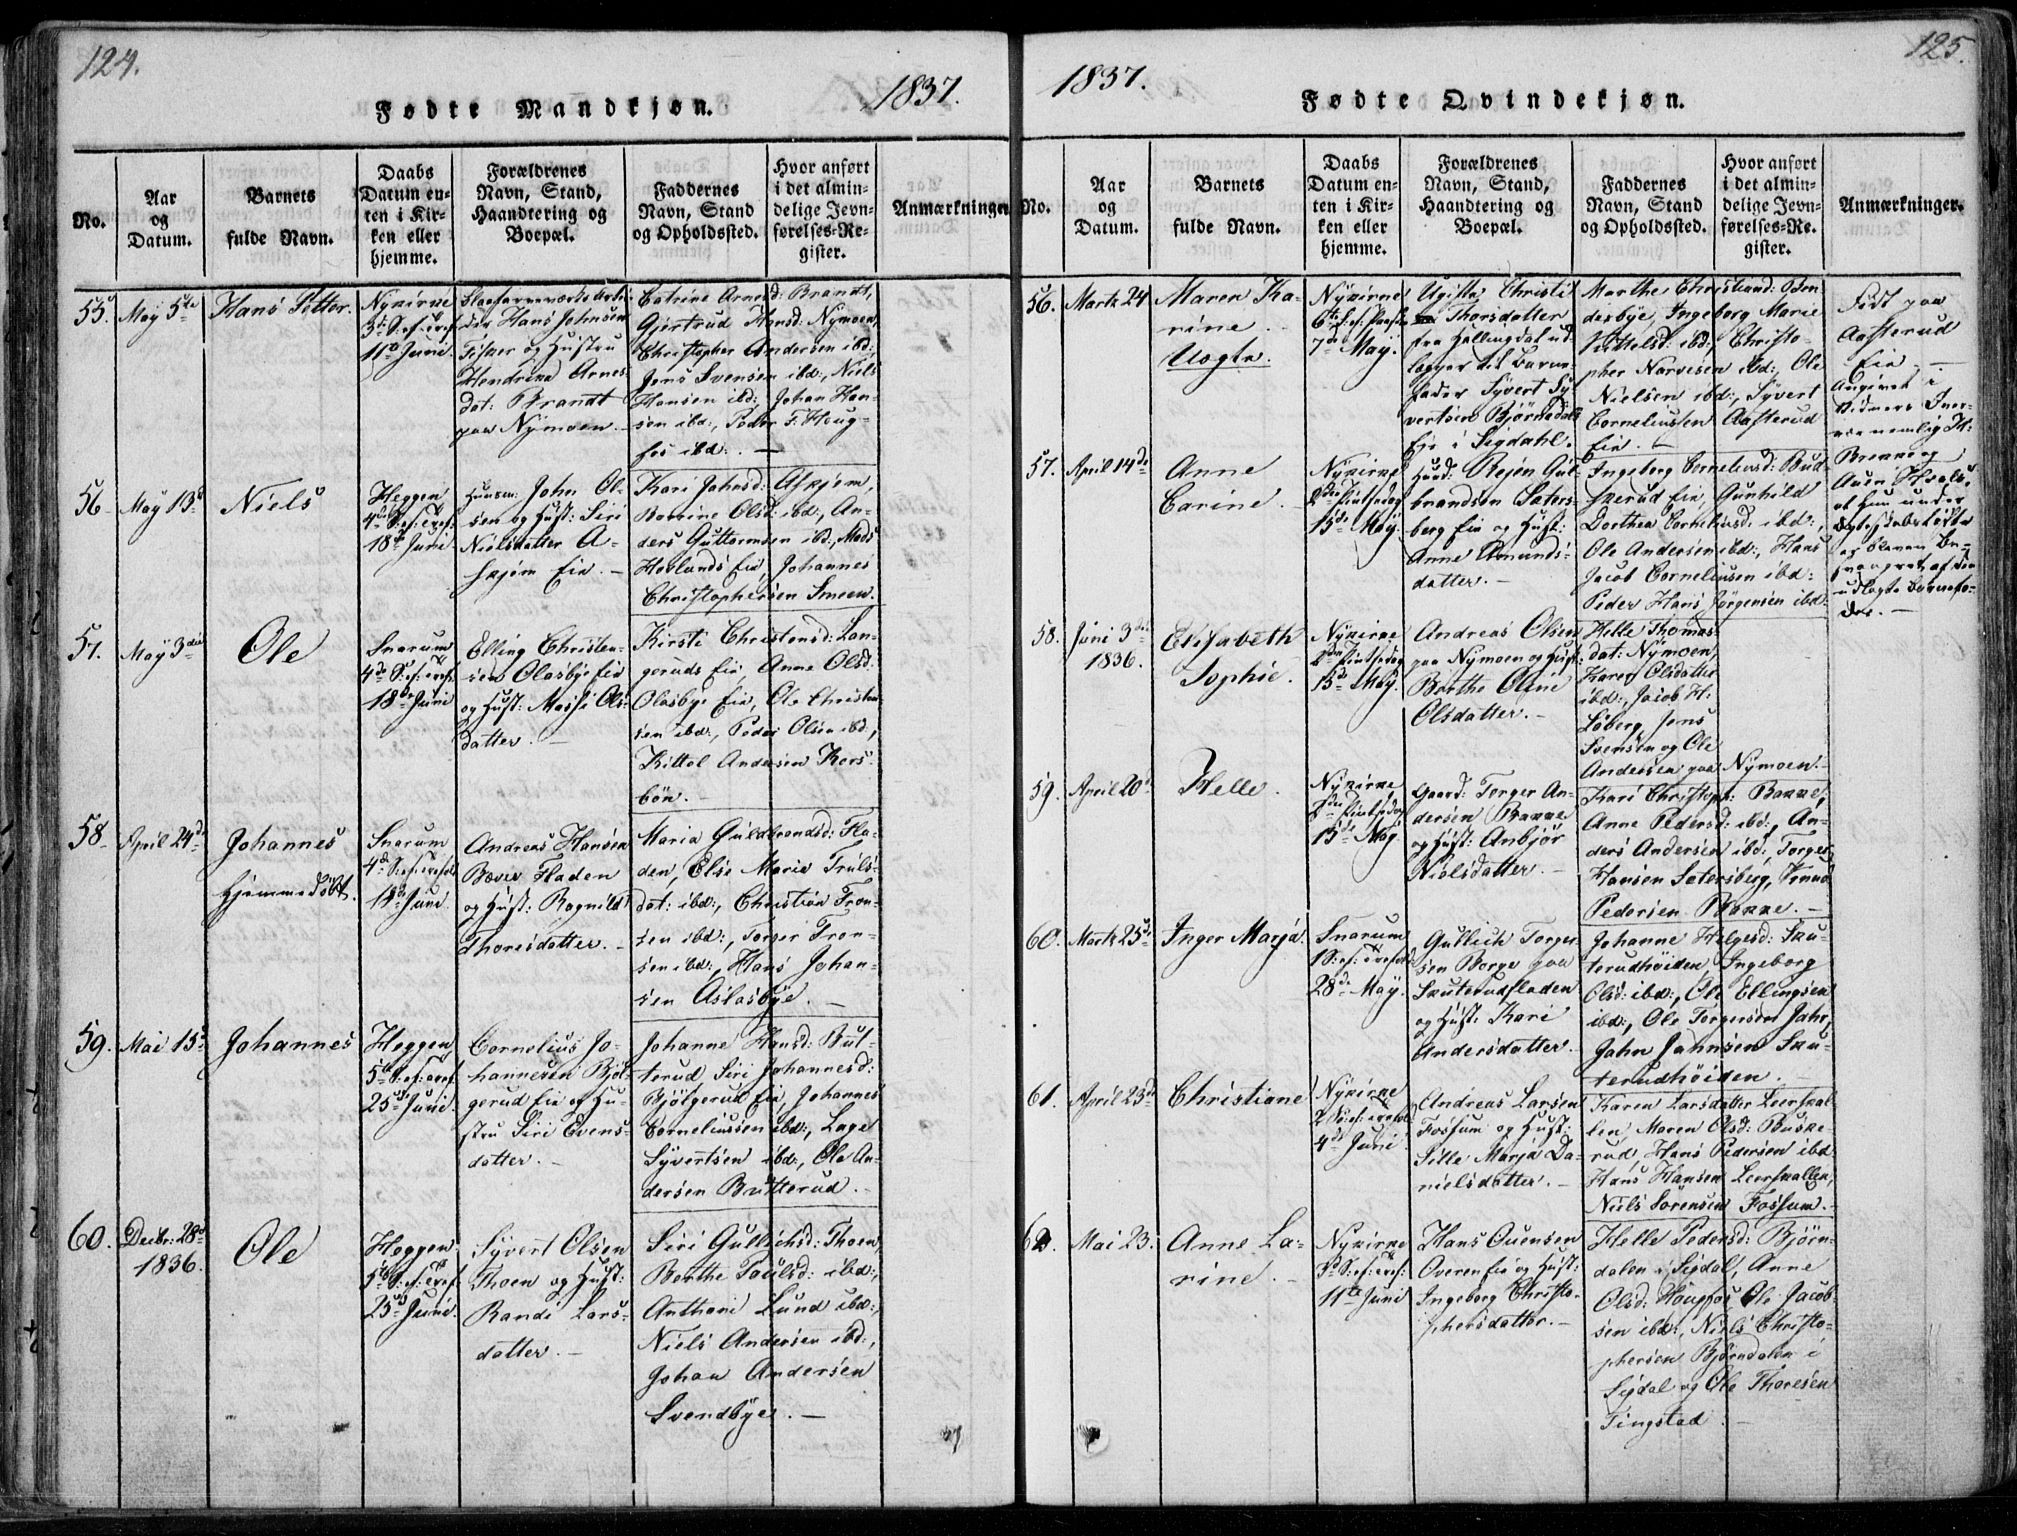 124.
1837.
Fødte Mandkjøn.
No.
Aar
og
Datum.
Barnets
fulde Navn.
Daabs
Datum en-
ten i Kir-
ken eller
hjemme.
Forældrenes
Navn, Stand,
Haandtering og
Boepæl.
Faddernes
Navn, Stand
og Opholdssted.
Hvor anført
i det almin-
delige Jevn-
førelses-Re-
gister.
Anmærkninger
55.
May 5te
Hans Petter.
Nykirke
11te Juni
Hans Johnsen
Fisker og Hustru
Hendrikke Arnes-
dat: Brandt
paa Nymoen.
Catrine Arnesd: Brandt,
Gjertrud Hansd: Nymoen,
Christopher Andersen ibd:,
Jens Svensen ibd:, Niels
Hansen ibd:, Johan Han-
sen ibd:, Peder F. Houg-
fos ibd:. —
56
May 13d
Niels
Heggen
18de Juni
Huusm: John Ol-
sen og Hust: Siri
Nielsdatter A-
skjem Eie. —
Kari Johnsd: Askjem,
Borrine Olsd: ibd:, An-
ders Guttormsen ibd:, Mads
Hovlands Eie, Johannes
Christophersen Smeen.
57.
May 3die
Ole
Snarum
18de Juni
Elling Christen-
sen Olasbye Eie
og Hust: Massi Ols-
datter. —
Kirsti Christensd: Lan-
geruds Eie, Anne Olsd:
Olasbye Eie, Ole Christen-
sen ibd:, Peder Olsen ibd:,
Kittel Andersen Kors-
bøn. —
58
April 24de
Johannes
Hjemmedøbt.
Snarum
18de Juni.
Andreas Hansen
Bæver Fladen
og Hust: Ragnild
Thoresdatter. —
Maria Guldbrandsd: Fla-
den, Else Marie Truls-
dat: ibd:, Christian Tron-
sen ibd:, Torger Tron-
sen ibd:, Hans Johan-
sen Aslasbye. —
59.
Mai 15de
Johannes
Heggen
25de Juni.
Cornelius Jo-
hannesen Bjøl-
gerud Eie og Hu-
stru Siri Evens-
datter. —
Johanne Hansd: But-
terud Siri Johannesd:
Bjølgerud Eie, Johannes
Corneliussen ibd:, Lage
Syvertsen ibd:, Ole An-
dersen Butterud. —
60.
Decbr: 28de
1836.
Ole
Heggen
25de Juni.
Syvert Olsen
Thoen og Hust:
Randi Lars-
datter. —
Siri Gullichsd: Thoen,
Berthe Poulsd: ibd:,
Anthoni Lund ibd:,
Niels Andersen ibd:,
Johan Andersen
Svendbye. —
125.
1837.
Fødte Qvindekjøn.
No.
Aar
og
Datum.
Barnets
fulde Navn.
Daabs
Datum en-
ten i Kir-
ken eller
hjemme.
Forældrenes
Navn, Stand,
Haandtering og
Boepæl.
Faddernes
Navn, Stand
og Opholdssted.
Hvor anført
i det almin-
delige Jevn-
førelses-Re-
gister.
Anmærkninger.
56.
Marts 24
Maren Ka-
rine.
Uægte.
Nykirke
7de May.
Ugifte Christi
Thorsdatter
fra Hallingdal ud-
lægger til Barne-
fader Syvert Sy-
vertsen Bjørnsdals
Eie i Sigdahl.
Marthe Christiansd: Ben
desbye, Ingeborg Marie
Kittelsd: ibd:, Christo-
pher Narvesen ibd:, Ole
Nielsen ibd:, Syvert
Corneliussen Aasterud
Eie. —
Født paa
Aasterud
Eie —
Angivet i
Vidners Over-
være nemlig
at Hun under
Ægteskabsløfte
af den
udlagte Barnefa-
der. —
57.
April 14de
Anne
Carine.
Nykirke
2den Pintsedag
15de May.
Huusm: Rejer Gul-
brandsen Saters-
berg Eie og Hust:
Anne Amunds-
datter. —
Ingeborg Corneliusd: Bud-
skerud Eie, Gunhild
Dorthea Corneliusd: ibd:,
Ole Andersen ibd:, Hans
Jacob Corneliusen ibd:
Peder Hans Jørgensen ibd:
58.
Juni 3die
1836.
Elisabeth
Sophie.
Nykirke
2den Pintsedag
15de May.
Andreas Olsen
paa Nymoen og Hust:
Berthe Oline
Olsdatter. —
Helle Thomas-
dat: Nymoen,
Karen Olsdatter
ibd:, Jacob H:
Løberg, Jens
Svensen og Ole
Andersen paa Nymoen. —
59.
April 20de
Helle.
Nykirke
2den Pintsedag
15de May
Gaard: Torger An-
dersen Bakke
og Hust: Anbjør
Nielsdatter. —
Kari Christoph: Bakke,
Anne Pedersd: ibd:, An-
ders Andersen ibd:, Torger
Hansen Satersberg,
Pedersen Bakke. —
60.
Marts 25de
Inger Marja.
Snarum
28de May.
Gullich Torger-
sen Borge paa
Skuterudfladen
og Hust: Kari
Andersdatter.
Johanne Helgesd: Sku-
terudhøiden, Ingeborg
Olsd: ibd:, Ole Ellingsen
ibd:, Ole Torgersen Jahr,
John Johnsen Sku-
terudhøiden. —
61.
April 23de
Christiane
Nykirke
4de Juni.
Andreas Larsen
Fossum og Hust:
Sille Marja Da-
nielsdatter. —
Karen Larsdatter Leerskal-
len, Maren Olsd: Buske-
rud, Hans Pedersen ibd:
Hans Hansen Leerskallen,
Niels Sørensen Fossum. —
62.
Mai 23.
Anne La-
rine. —
Nykirke
11te Juni
Hans Ouensen
Overen Eie og Hust:
Ingeborg Christo-
phersdatter. —
Helle Pedersd: Bjørn-
dalen i Sigdal, Anne
Olsd: Hougfos, Ole Jacob-
sen ibd:, Niels Christo-
phersen Bjørndalen i
Sigdal og Ole Thoresen
Tingstad. —